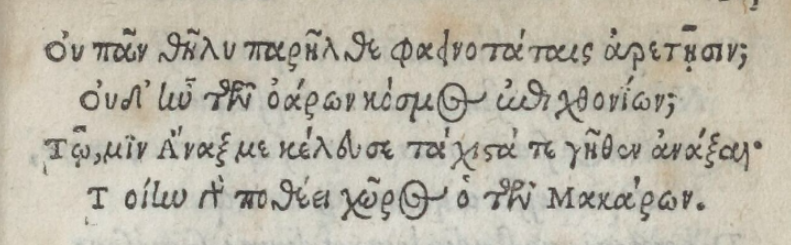 Οὐ πᾶν θῆλυ παρῆλθε φαεινοτάταις ἀρετῇσιν;
Οὐδ' ἦν τῶν ὀάρων κόσμος ἐπιχθονίων;
Τῷ, μὶν Ἄναξ με κέλευσε τάχιστά τε γῆθεν ἀνάξαι·
Τ οίην γὰρ ποθέει χῶρος ὁ τῶν Μακάρων.